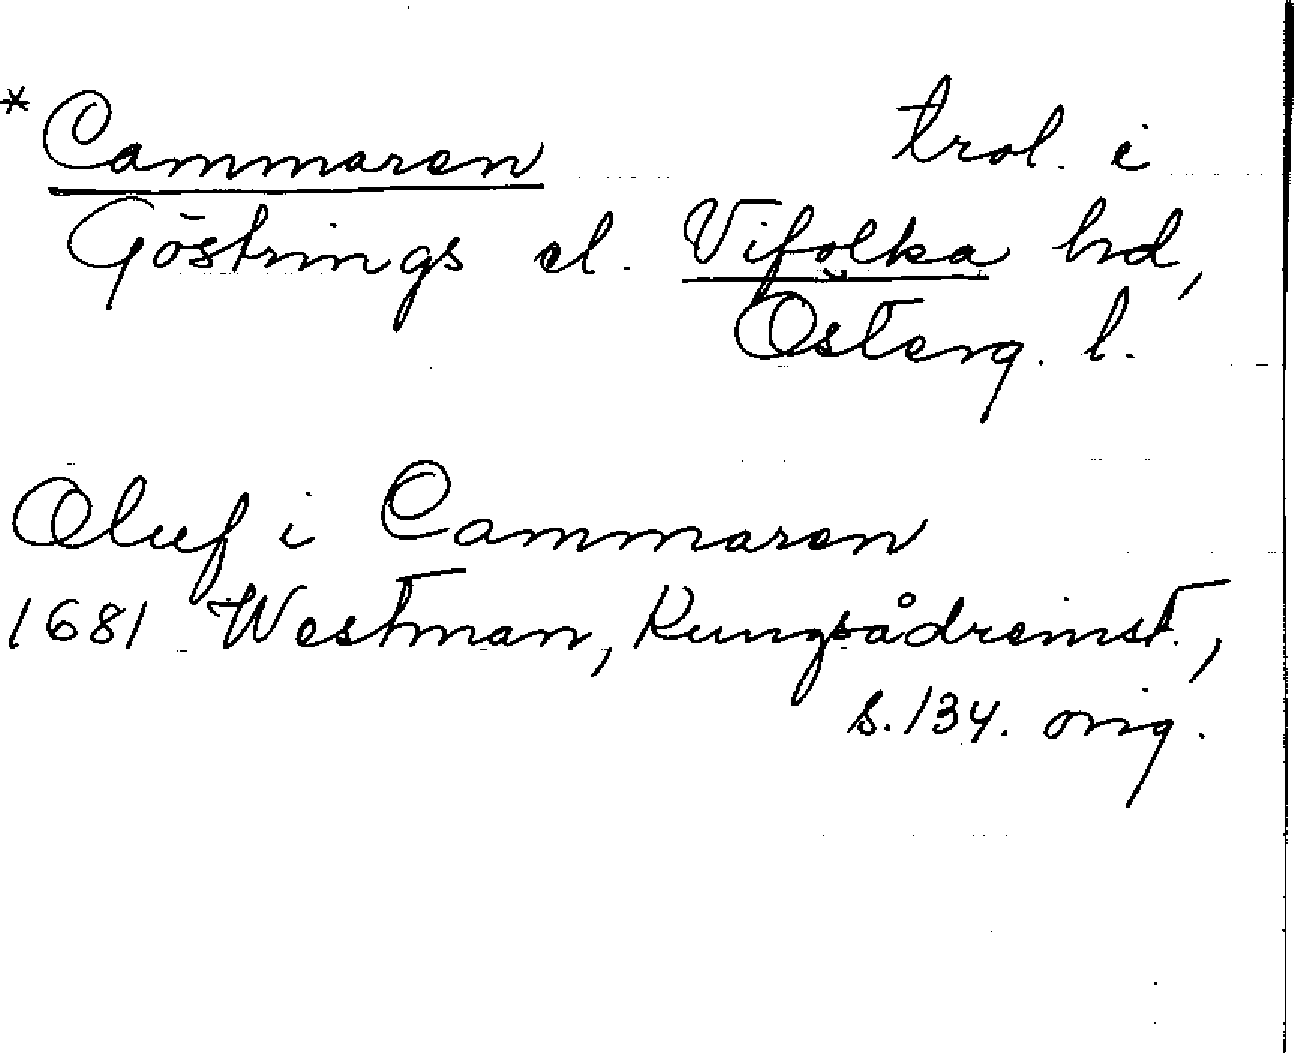 * Cammaren trol. i
Göstrings el. Vifolka hd,
Österg. l.
Oluf i Cammaren
1681 Westman, Kungsådreinst.,
s. 134. orig.